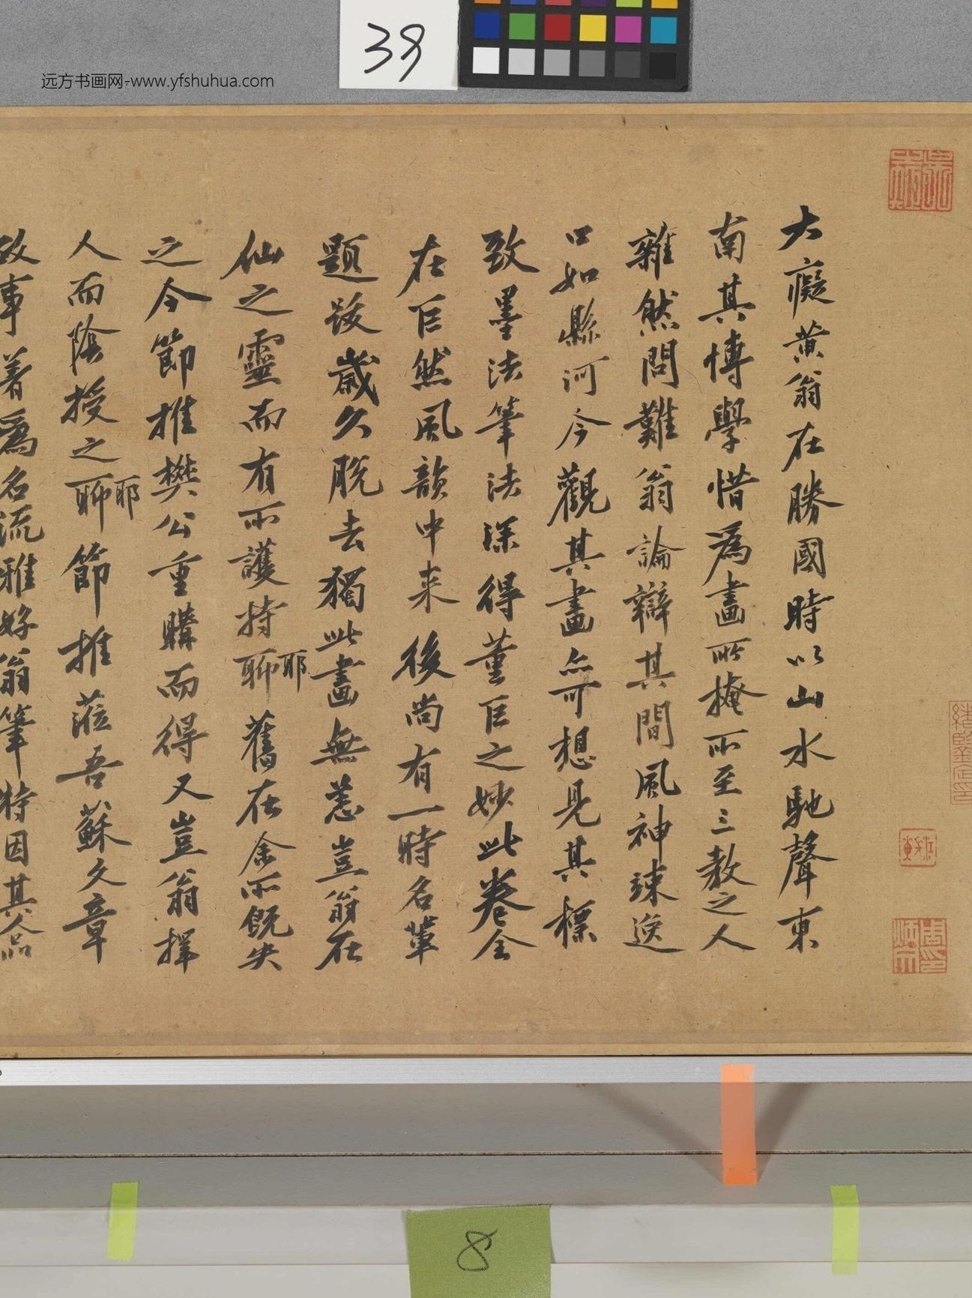 39
远方书画网-www.yfshuhua.com
大癡黃翁在勝國時以山水馳聲東
南其博學惜為畫所掩所至三教之人
雜然問難翁論辯其間風神竦逸
口如懸河今觀其畫亦可想見其標
致墨法筆法深得董巨之妙此卷全
在巨然風韻中来後尚有一時名輩
題跋歲久脫去獨此畫無恙豈翁在
仙之靈而有所護持耶舊在余所既失
之今節推樊公重購而得又豈翁揮
人而陰授之耶節推蒞吾蘇文章
政事著為名流雅好翁筆特因其品
8